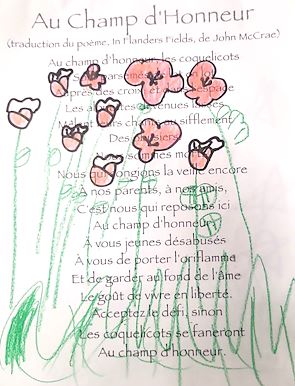 Au Champ d'Honneur
(traduction du poème, In Flanders Fields, de John McCrae)
Au champ d'honneur, les coquelicots
sont parsemés
Auprès des croix et espace
Les devenues
chants au sifflement
Des
sommes
Nous qui songions la veille encore
À nos parents, à nos amis,
C'est nous qui reposons ici
Au champ d'honneur
À vous jeunes désabusés
À vous de porter l'oriflamme
Et de garder au fond de l'âme
Le goût de vivre en liberté.
Acceptez le défi, sinon
Les coquelicots se faneront
Au champ d'honneur.